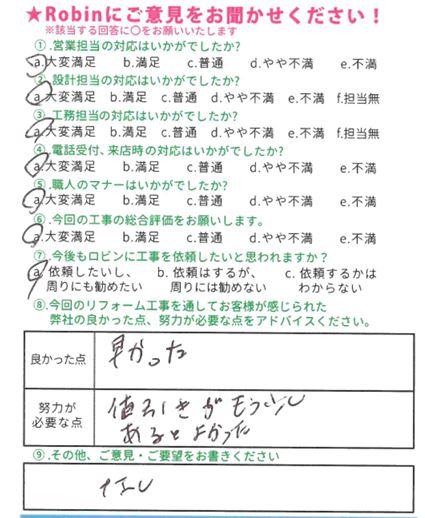 ★Robinにご意見をお聞かせください！
※該当する回答に○をお願いいたします
①.営業担当の対応はいかがでしたか?
a.大変満足 b.満足 c.普通 d.やや不満 e.不満
②.設計担当の対応はいかがでしたか?
a.大変満足 b.満足 c.普通 d.やや不満 e.不満 f.担当無
③.工務担当の対応はいかがでしたか?
a.大変満足 b.満足 c.普通 d.やや不満 e.不満 f.担当無
④.電話受付、来店時の対応はいかがでしたか?
a.大変満足 b.満足 c.普通 d.やや不満 e.不満
⑤.職人のマナーはいかがでしたか?
a.大変満足 b.満足 c.普通 d.やや不満 e.不満
⑥.今回の工事の総合評価をお願いします。
a.大変満足 b.満足 c.普通 d.やや不満 e.不満
⑦.今後もロビンに工事を依頼したいと思われますか？
a.依頼したいし、 b.依頼はするが、 c.依頼するかは
周りにも勧めたい 周りには勧めない わからない
⑧.今回のリフォーム工事を通してお客様が感じられた
弊社の良かった点、努力が必要な点をアドバイスください。
良かった点 早かった
努力が
必要な点
値引きがもう少し
あるとよかった
⑨.その他、ご意見・ご要望をお書きください
なし